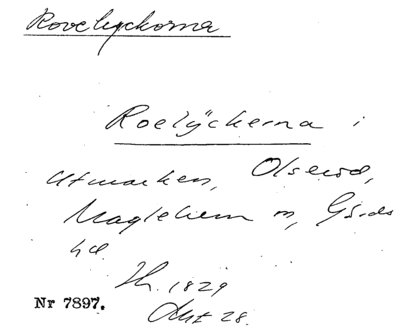 Rovelyckorna
Roelÿckerna i
Utmarken, Olserød,
Maglehem s, Gärds
hd.
Sk. 1829
Akt 28.
Nr 7897.